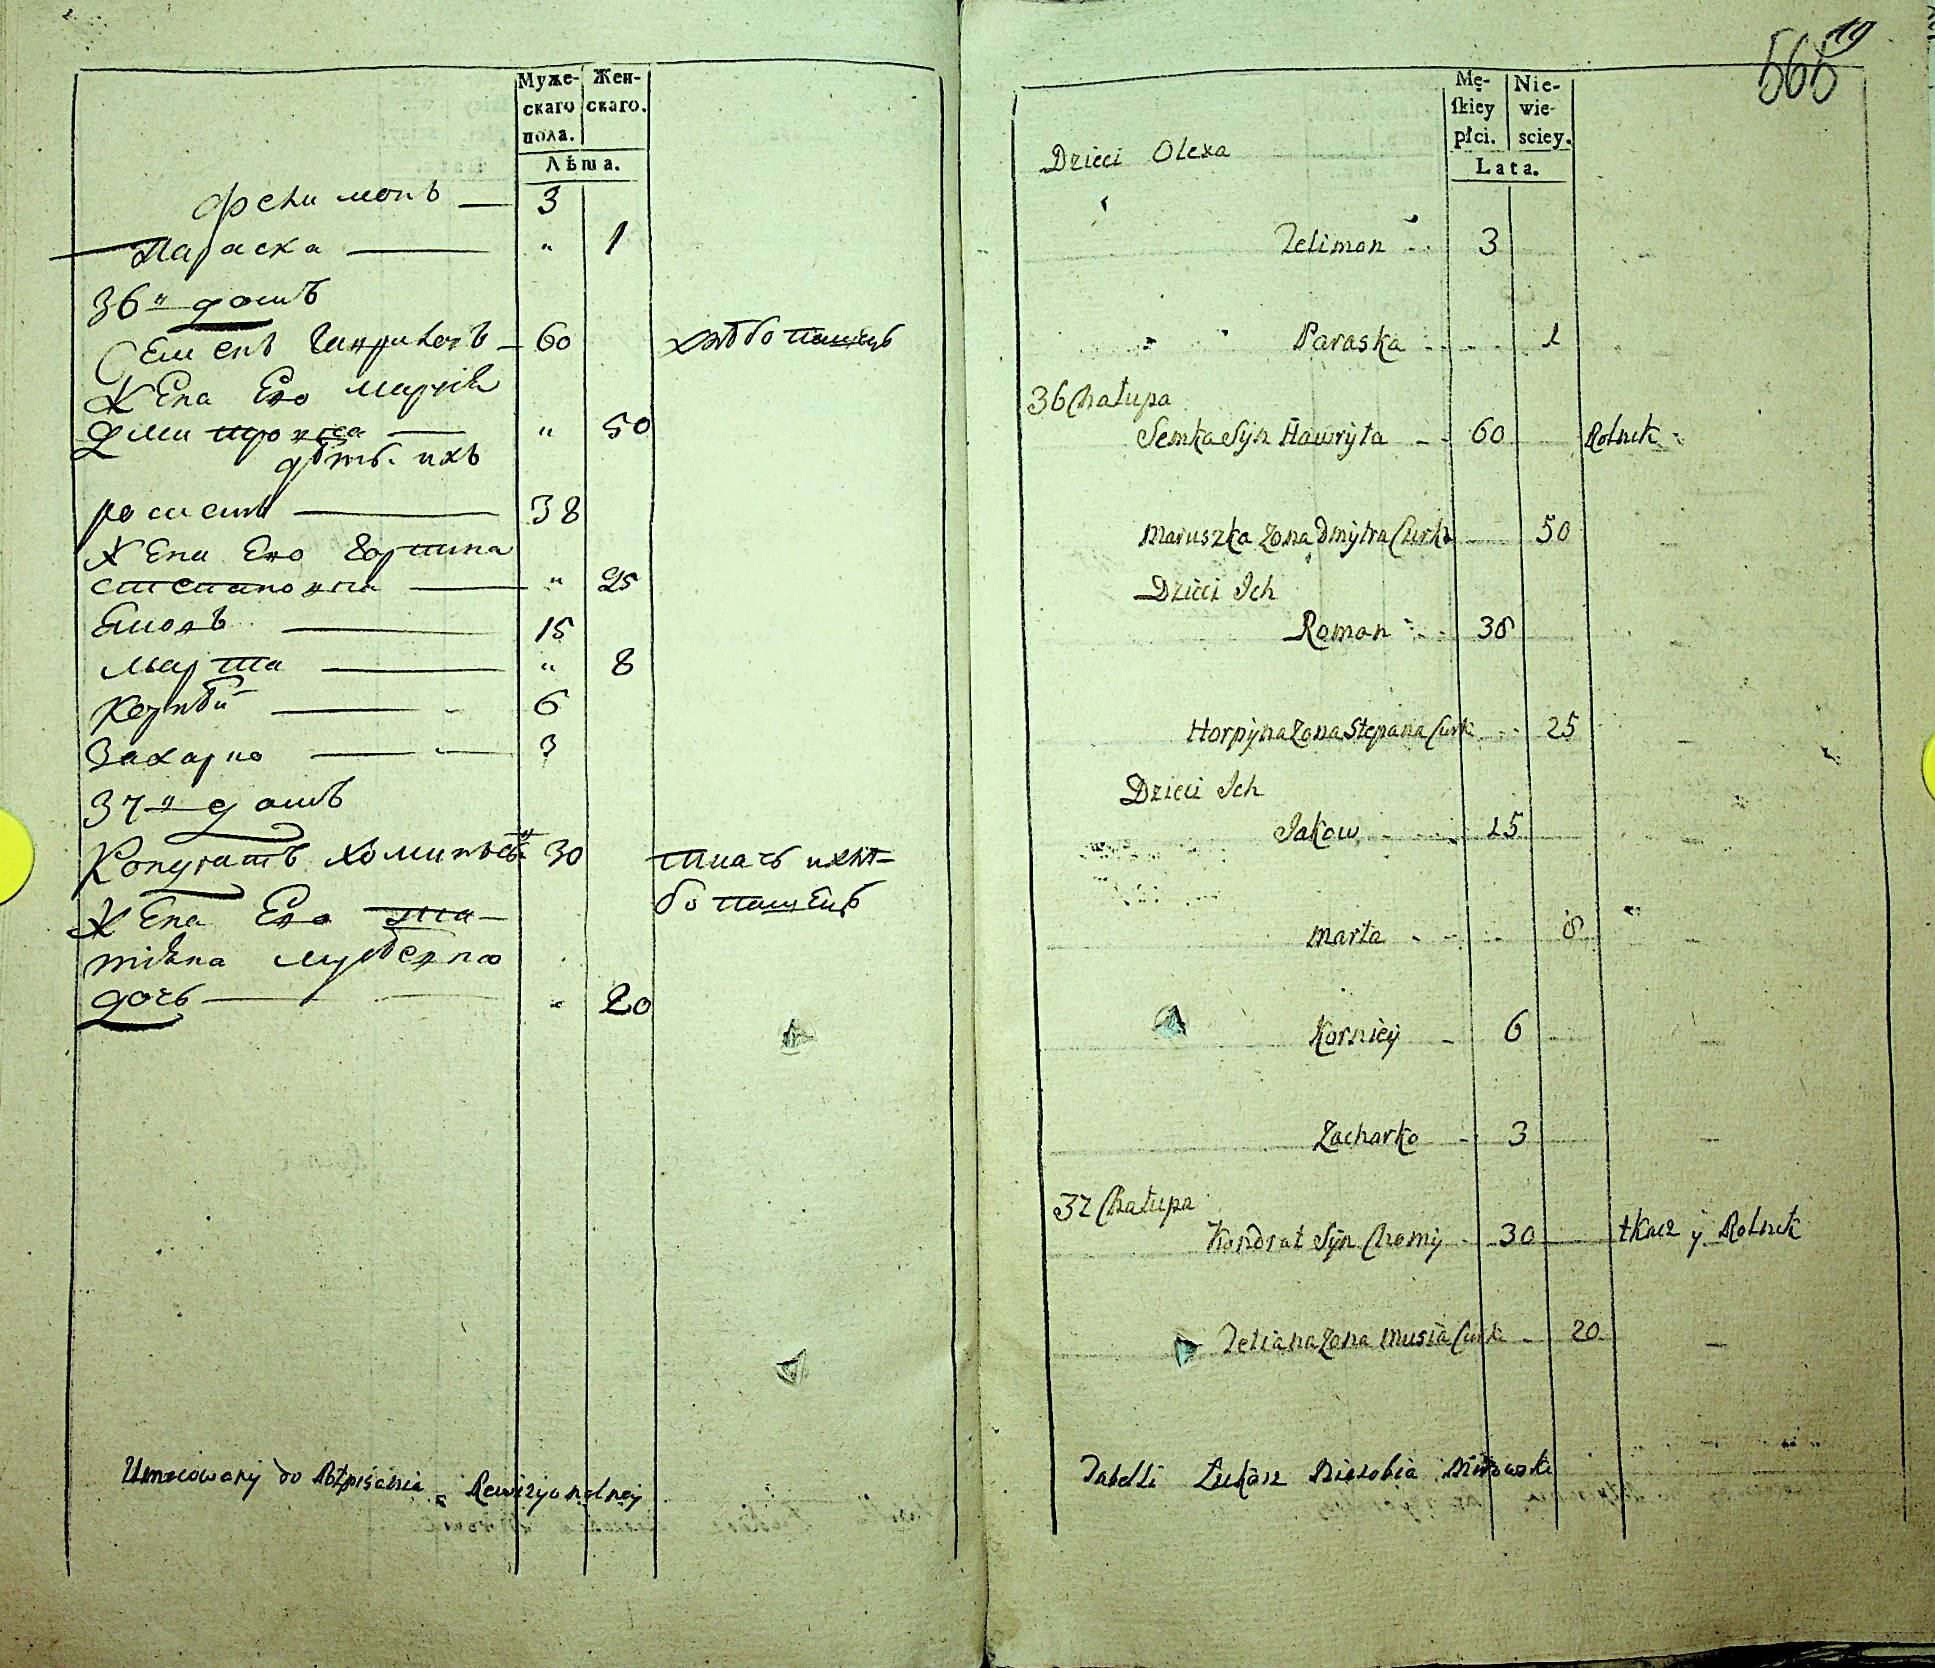 Муже-
скаго
пола.
Жен-
скаго.
Лѣта.
Фелимонъ 3
Параска " 1
36 " домъ
Семенъ Гавриловъ 60 хлѣбопашецъ
Жена Его Марїя
Дмитровна " 50
дѣти ихъ
романъ 38
Жена Его Горпина
степановна " 25
Яковъ 15
Марта " 8
Корнѣй 6
Захарко 3
37 " домъ
Кондратъ Хоминъ 30 ткачь и хлѣ=
бопашецъ
Жена Его
20
дочь
Umocowany do Rewizyonalney
566
19
Mę-
skiey
płci.
Nie-
wie-
sciey.
Lata.
Dzieci Olexa
Felimon 3
Paraska 1
36 Chałupa
Semka Syn Hawryła 60 Rolnik
Maruszka Zona Dmytra Curka 50
Dzieci Ich
Roman 38
Horpyna Zona Stepana Curk 25
Dzieci Ich
Jakow 15
Marta 8
Kornieÿ 6
Zacharko 3
37 Chałupa
Kondrat Syn Chomy 30 tkacz y Rolnik
Tetiana Zona Musia Curk 20
Tabelli Łukasz